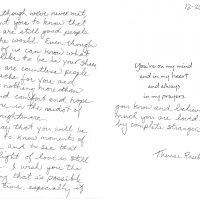 though we've never met,
want you to know that
are still good people
the world. Even though
of us can know what
like to be in your shoes
are countless people
ache for you and
nothing more than
and comfort and hope
in the midst of
nightmare.
pray that you will be
to know moments of
and to see that
light of love is still
I wish you the
that is possible
time, especially if
12-20
You're on my mind
and in my heart
and always
in my prayers.
you know and believe
much you are loved
by complete strangers.
Therese